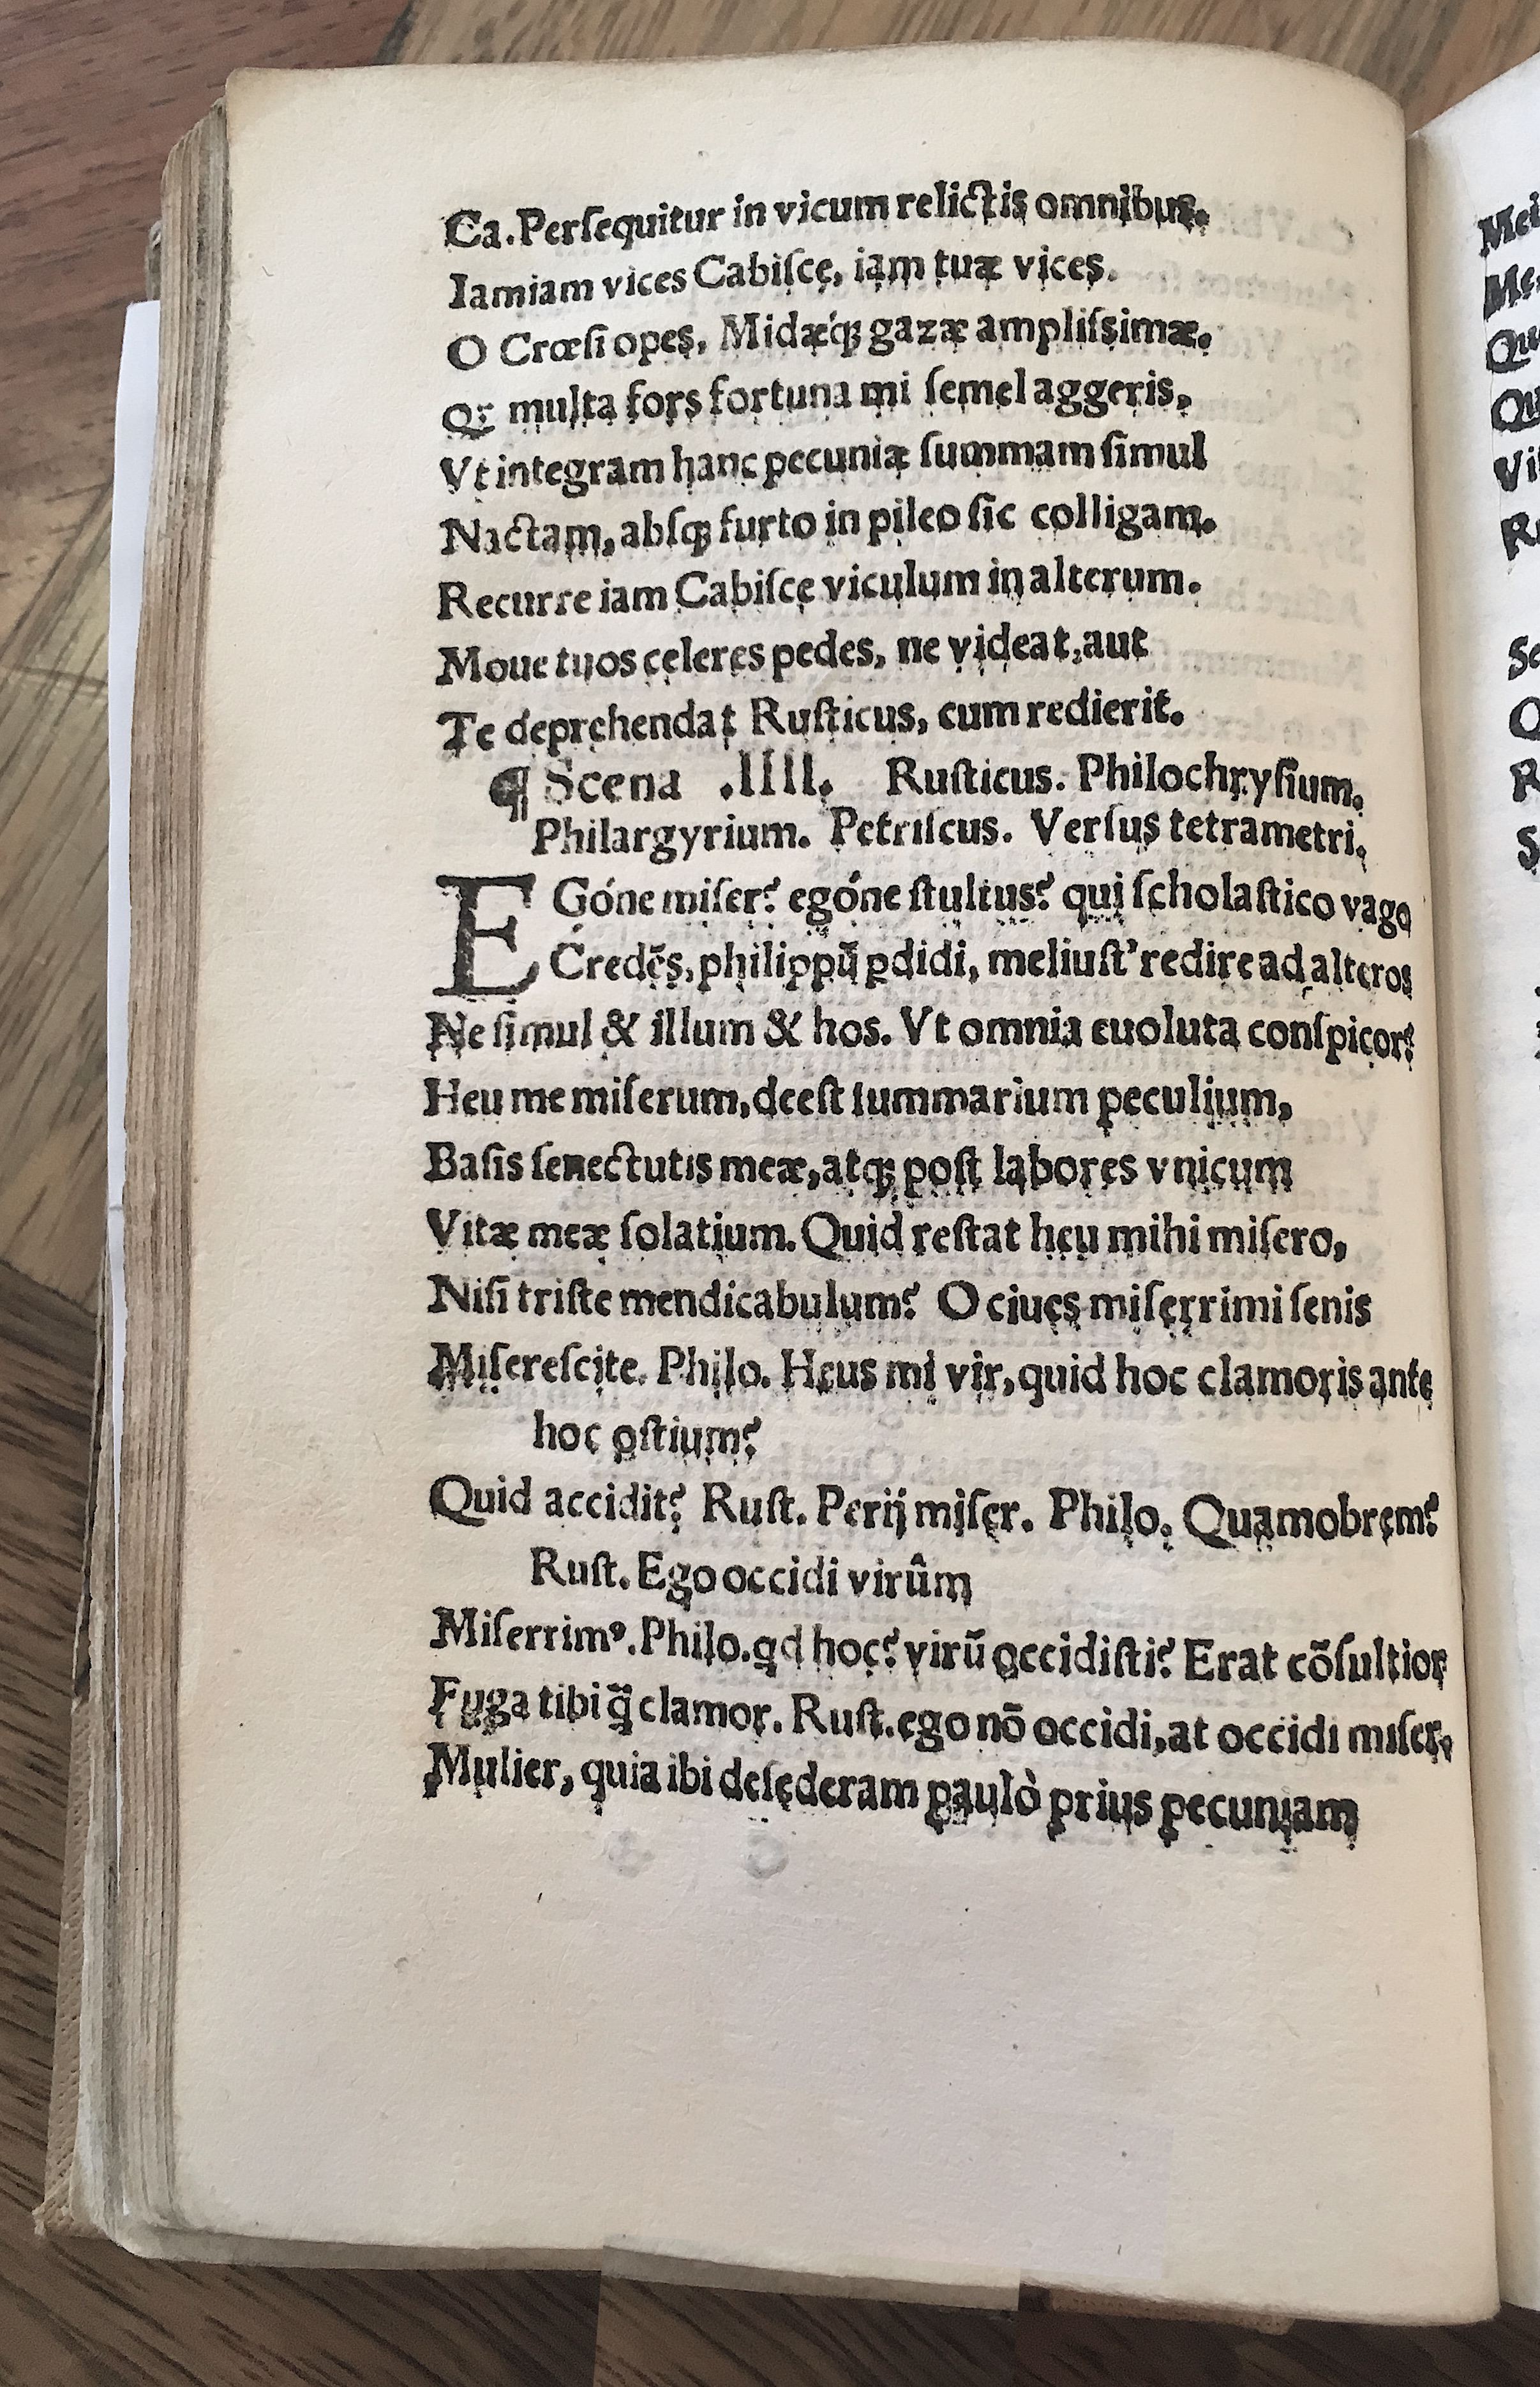 Ca. Perſequitur in vicum relictis omnibus.
Iamiam vices Cabiſce, iam tuæ vices.
O Crœſi opes, Midæq́; gazæ ampliſsimæ.
multa fors fortuna mi ſemel aggeris,
Vt integram hanc pecuniæ ſummam ſimul
Nactam, abſq; furto in pileo ſic colligam.
Recurre iam Cabiſce viculum in alterum.
Moue tuos celeres pedes, ne videat, aut
Te deprehendat Ruſticus, cum redierit.
¶ Scena .IIII. Ruſticus. Philochryſium.
Philargyrium. Petriſcus. Verſus tetrametri.
EGóne miſer? egóne ſtultus? qui ſcholaſtico vago
Credẽs, philippũ ꝑdidi, meliuſt' redire ad alteros
Ne ſimul & illum & hos. Vt omnia euoluta conſpicor?
Heu me miſerum, deeſt ſummarium peculium,
Baſis ſenectutis meæ, atq; poſt labores vnicum
Vitæ meæ ſolatium. Quid reſtat heu mihi miſero,
Niſi triſte mendicabulum? O ciues miſerrimi ſenis
Miſereſcite. Philo. Heus mi vir, quid hoc clamoris ante
hoc oſtium?
Quid accidit? Ruſt. Perij miſer. Philo. Quamobrem?
Ruſt. Ego occidi virûm
Miſerrimꝰ. Philo. qd hoc? virũ occidiſti? Erat cõſultior
Fuga tibi q̃ clamor. Ruſt. ego nõ occidi, at occidi miſer,
Mulier, quia ibi deſederam paulò prius pecuniam